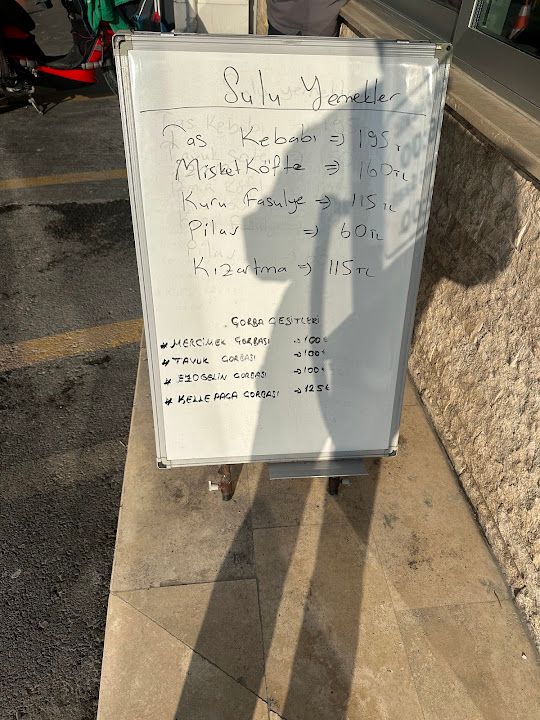 Sulu Yemekler
Tas Kebabı => 195₺
Misket Köfte => 160TL
Kuru Fasulye => 115TL
Pilav => 60TL
Kızartma => 115TL
ÇORBA ÇEŞİTLERİ
* MERCİMEK ÇORBASI => 100₺
* TAVUK ÇORBASI => 100₺
* EZOGELİN ÇORBASI => 100₺
* KELLE PAÇA ÇORBASI => 125₺